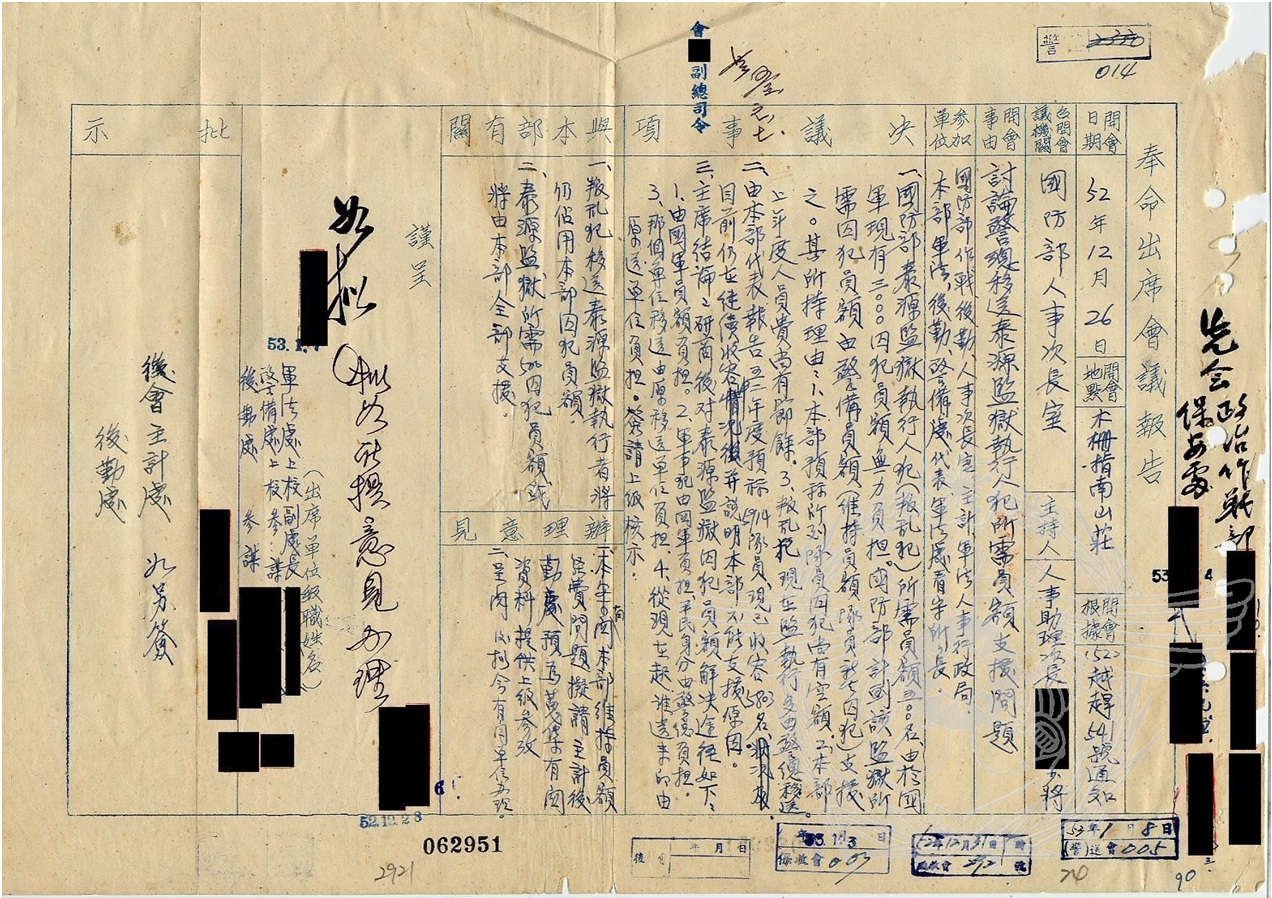 奉命出席會議報告
開會日期
52年12月26日
開會地點
木柵指南山莊
開會根據
(52)越趕541號通知
召開會議機關
國防部人事次長室
主持人
人事助理次長
少將
開會事由
討論警總移送泰源監獄執行人犯所需員額支援問題
參加單位
國防部作戰後勤、人事次長室、主計軍法人事行政局
本部軍法、後勤、警備處代表軍法處看守所所長。
決議事項
一、國防部泰源監獄執行人犯(叛乱犯)所需員額五〇〇名由於國
軍現有三〇〇〇囚犯員額無力負担。國防部計劃該監獄所
需囚犯員額由警備員額(維持員額、隊員
囚犯)支援
之。其所持理由:1.本部預祘所列隊員囚犯尚有空額。2.本部
上年度人員費尚有節餘、3.叛乱犯現在監執行多由警總移送
二、由本部代表報告五三年度預祘
隊員現已收容
名
目前仍在繼續收容情況後并説明本部不能支援原因。
三、主席結論:研商後对泰源監獄囚犯員額解決途徑如下:
1.由國軍員額負担。2.軍事犯由國軍負担平民身分由警總負担。
3.那個單位移送由原移送單位負担。4.從現在起誰送來的由
原送單位負担。簽請上級核示。
與本部有關
一、叛乱犯移送泰源監獄執行者將
仍佔用本部囚犯員額。
二、泰源監獄所需如囚犯員額或
將由本部全部支援。
辦理意見
一、本年有関本部維持員額
經費問題擬請主計後
勤處預為蒐集有関
資料提供上級參攷
二、呈閱後
有関單位
謹呈
批示
如拟
拟如所擬意見办理
(出席單位級職姓名)
軍法處上校副處長
警備處上校參謀
後勤處 參謀
後會主計處
後勤處
如另簽
先會政治作戰部
保安處
代
會
副總司令
警
014
53.1.7
52.12.28
062951
2921
後會 年月日
年53.1.3日
保收會 003
52年12月31日 時
收會 292 號
53年1月8日
(警)送會005
74
90